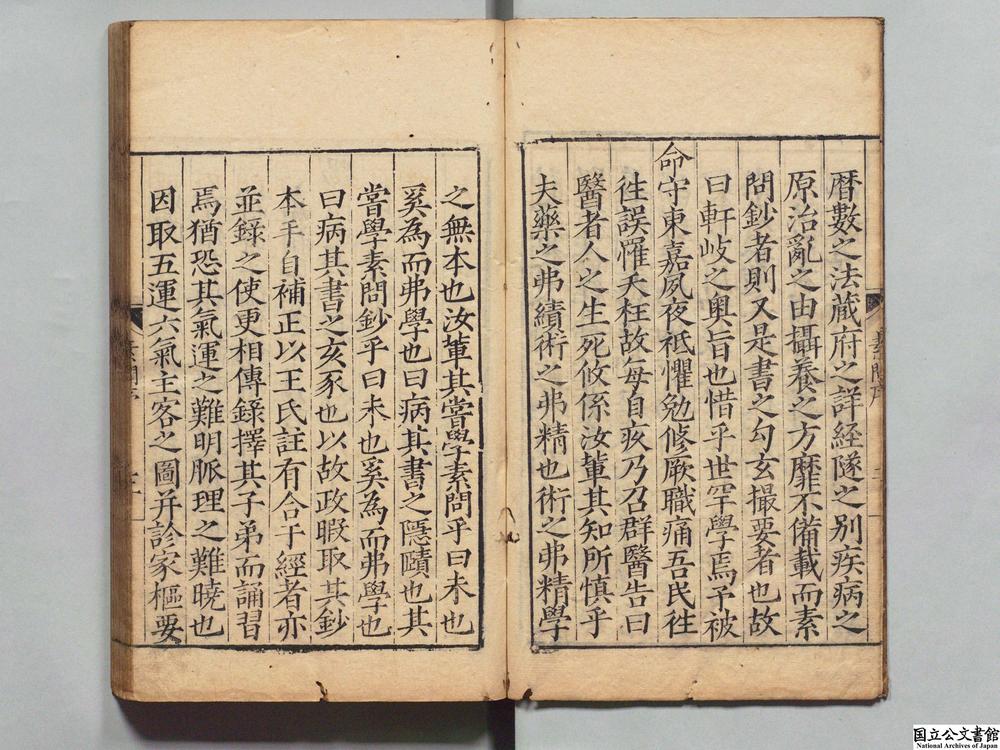 暦數之法蔵府之詳経隧之别疾病之
原治亂之由攝養之方靡不備載而素
問鈔者則又是書之勾玄撮要者也故
曰軒岐之奥旨也惜乎世罕學焉予被
命守東嘉夙夜祗懼勉修厥職痛吾民徃
徃誤罹夭枉故每自疚乃召群醫告曰
醫者人之生死攸係汝軰其知所慎乎
夫藥之弗績術之弗精也術之弗精學
之無本也汝軰其嘗學素問乎曰未也
奚為而弗學也曰病其書之隱賾也其
嘗學素問鈔乎曰未也奚為而弗學也
曰病其書之亥豕也以故政暇取其鈔
本手自補正以王氏註有合于經者亦
並錄之使更相傳錄擇其子弟而誦習
焉猶恐其氣運之難明脈理之難曉也
因取五運六氣主客之圖并診家樞要
素問序
国立公文書館
National Archives of Japan